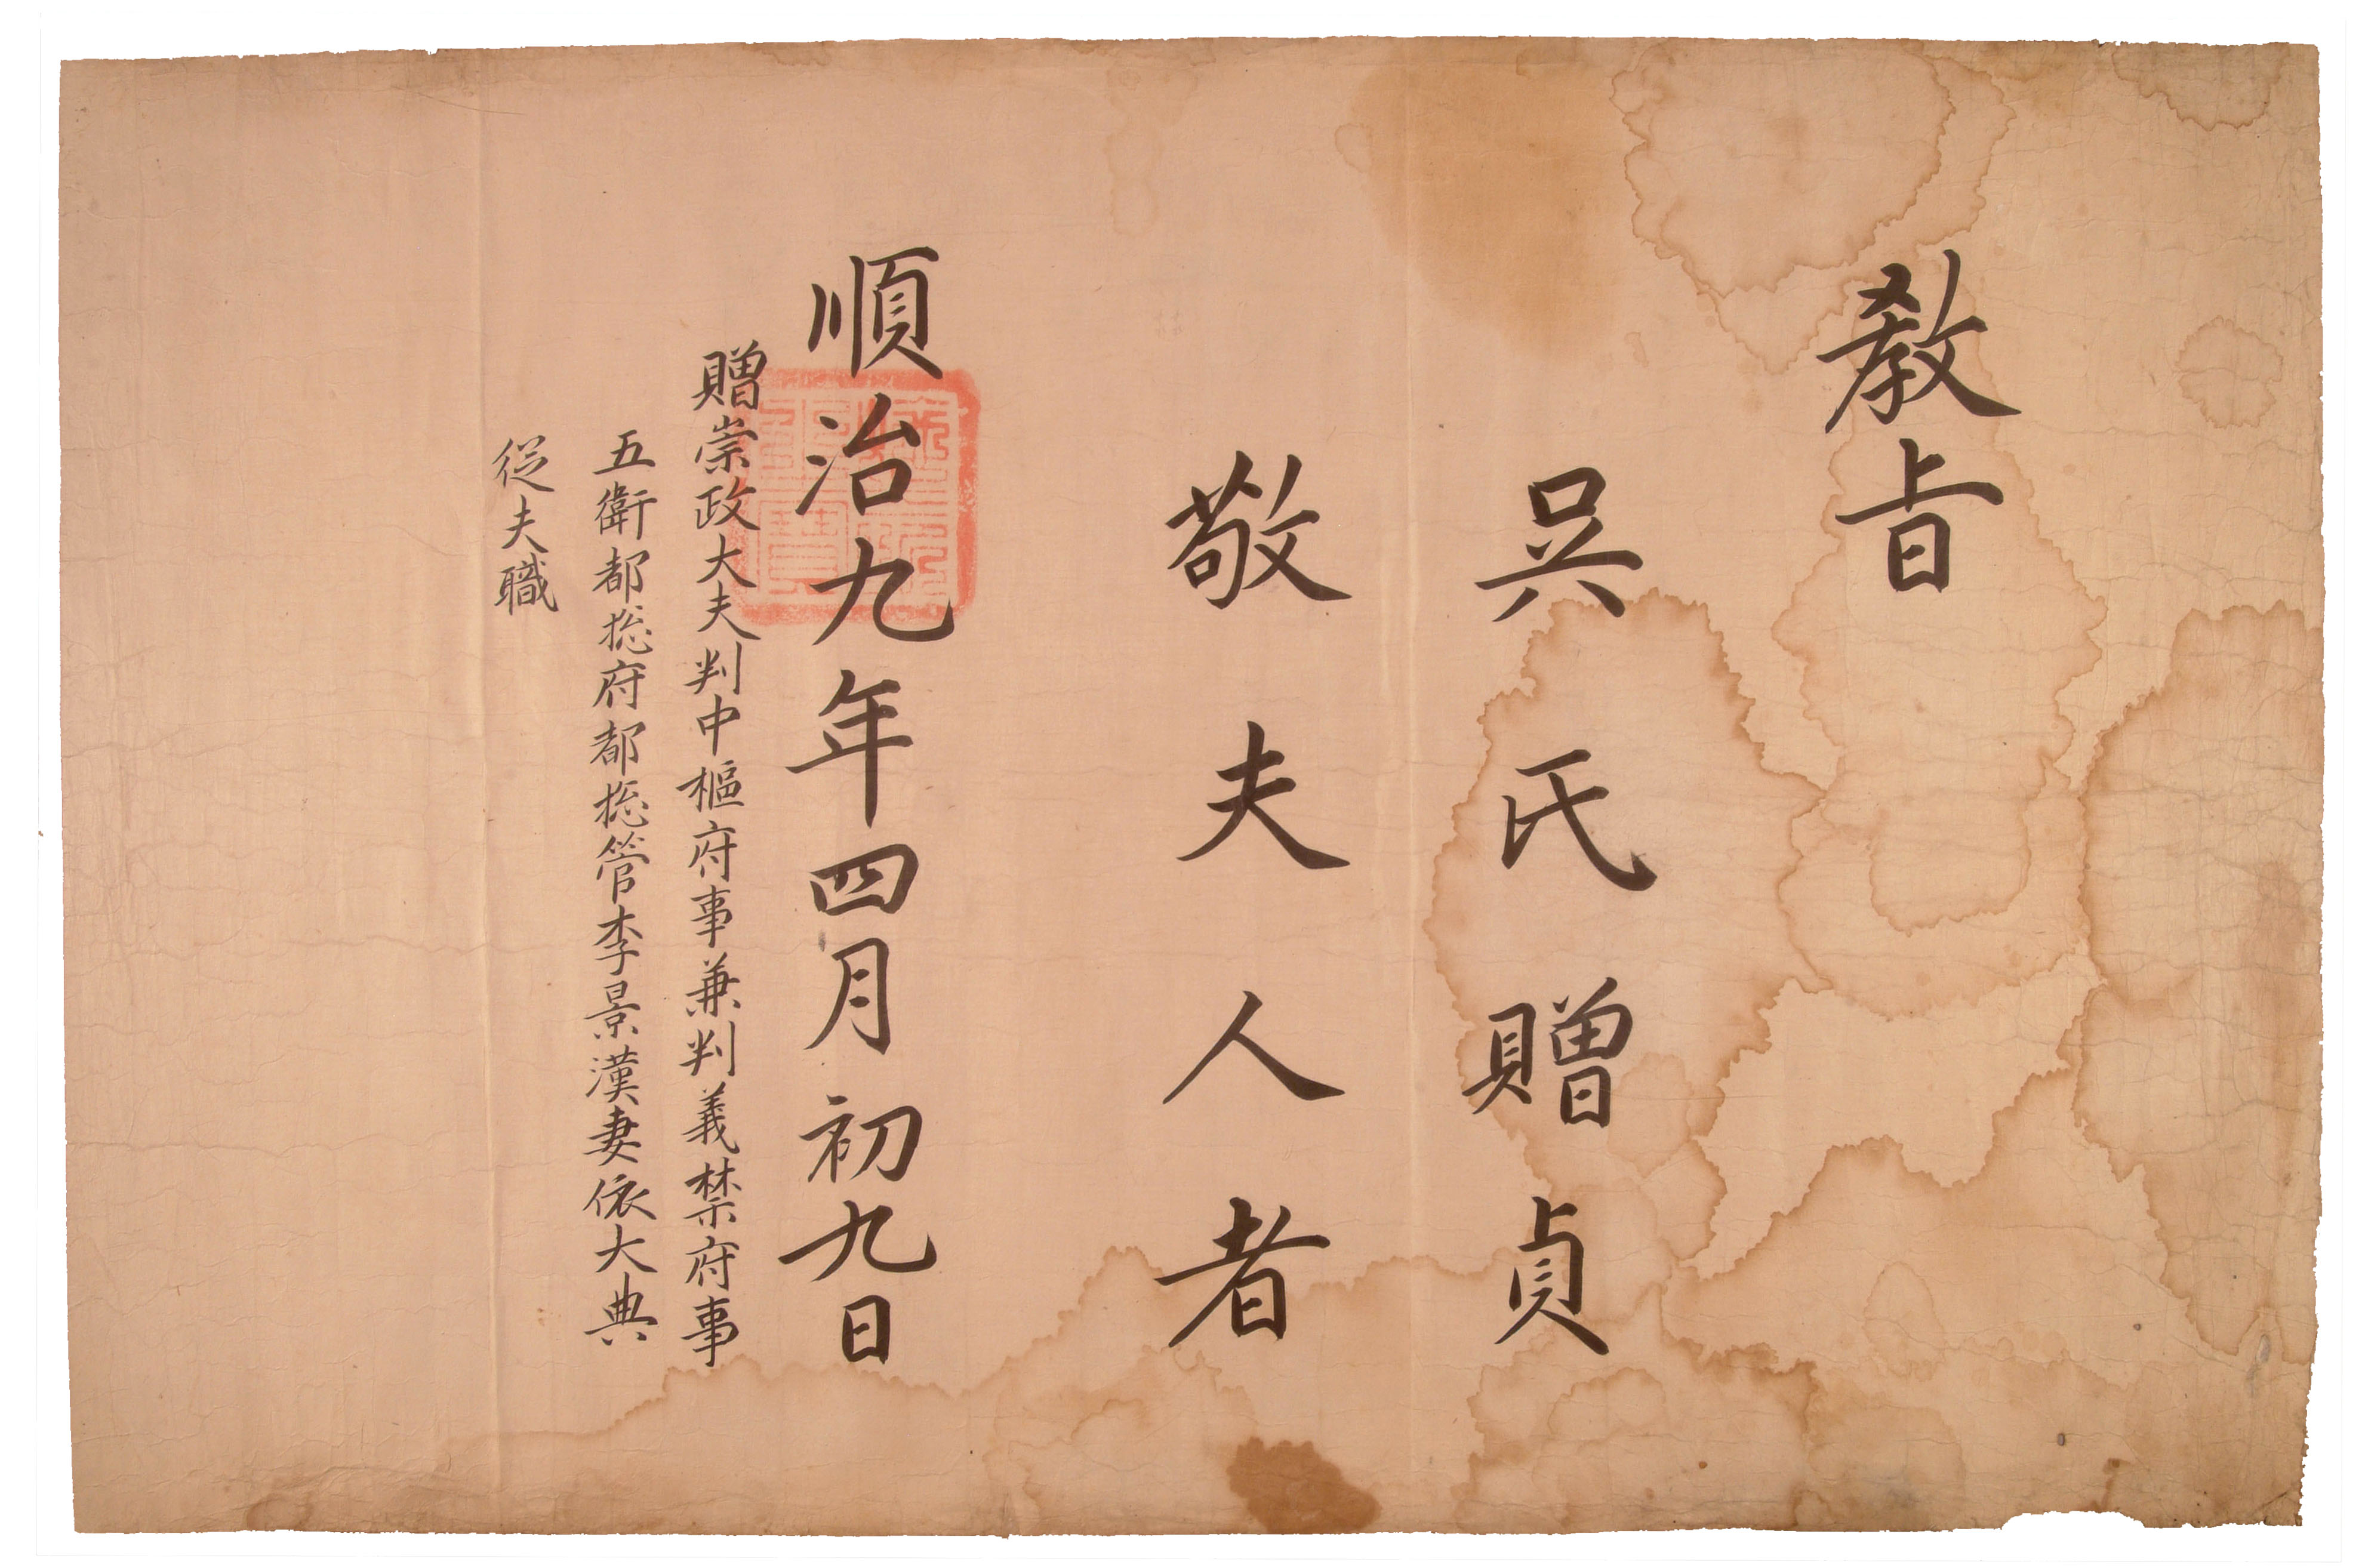 敎旨
吳氏贈貞
敬夫人者
順治九年四月初九日
贈崇政大夫判中樞府事兼判義禁府事
五衛都摠府都摠管李景漢妻依大典
從夫職